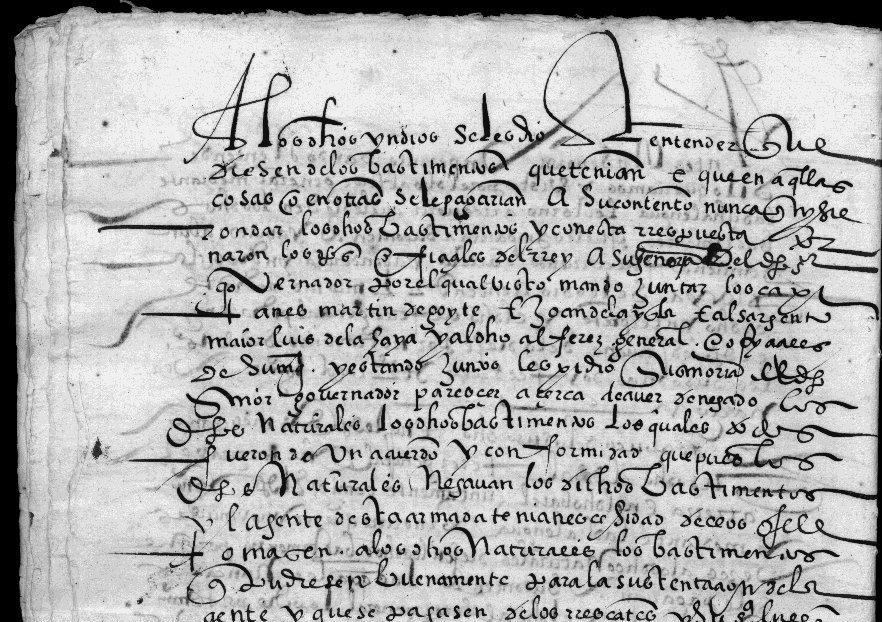 A los dhos yndios se les dio a entender que
diesen de los bastimentos que tenian e que en aqllas
cosas o en otras se le pagarian a su contento nunca quysie
ron dar los dhos bastimentos y con esta rrespuesta
naron los offiçiales del rrey a su señoria del dho sr
governador por el qual visto mando juntar los capi
tanes martin de goyte e joan de la ysla e al sargento
maior luis de la haya y al dho alferez general e ofiçiales
de su magd y estando juntos les pidio su señoria el dho
señor governador pareçer açerca de aver denegado los
dhos naturales los dhos bastimentos los quales todos
fueron de un acuerdo y conformidad que pues los
dhos naturales negavan los dichos bastimentos
y la gente desta armada tenia nesçesidad dellos se le
tomasen a los dhos naturales los bastimentos
q pudiesen buenamente para la sustentaçion de la
gente y que se pagasen de los rrescates